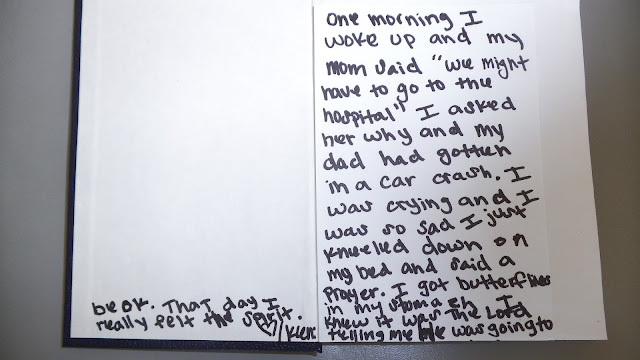 one morning I
woke up and my
mom said "we might
have to go to the
hospital" I asked
her why and my
dad had gotten
in a car crash. I
was crying and I
was so sad I just
kneeled down on
my bed and said a
prayer. I got butterflies
in my stomach. I
knew it was The Lord
telling me he was going to
be ok. That day I
really felt the spirit.